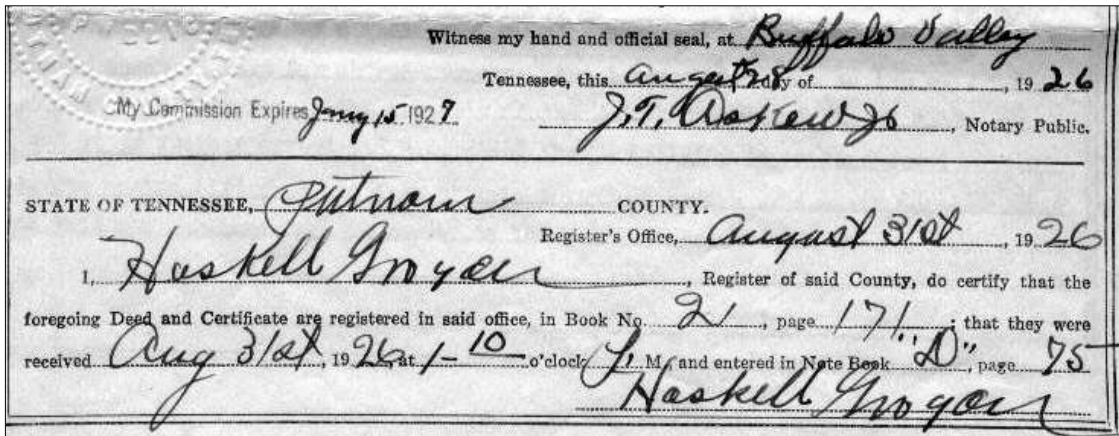 Witness my hand and official seal, at Buffalo Valley
Tennessee, this August 28 day of , 1926
My Commission Expires Jany 15 1927
J.T. Askew Jr , Notary Public.
STATE OF TENNESSEE, Putnam COUNTY.
Register's Office, August 31st , 1926
I, Haskell Grogan , Register of said County, do certify that the
foregoing Deed and Certificate are registered in said office, in Book No. 21 , page 171 ; that they were
received Aug 31st , 1926, at 1-10 o'clock P. M., and entered in Note Book "D", page 75
Haskell Grogan